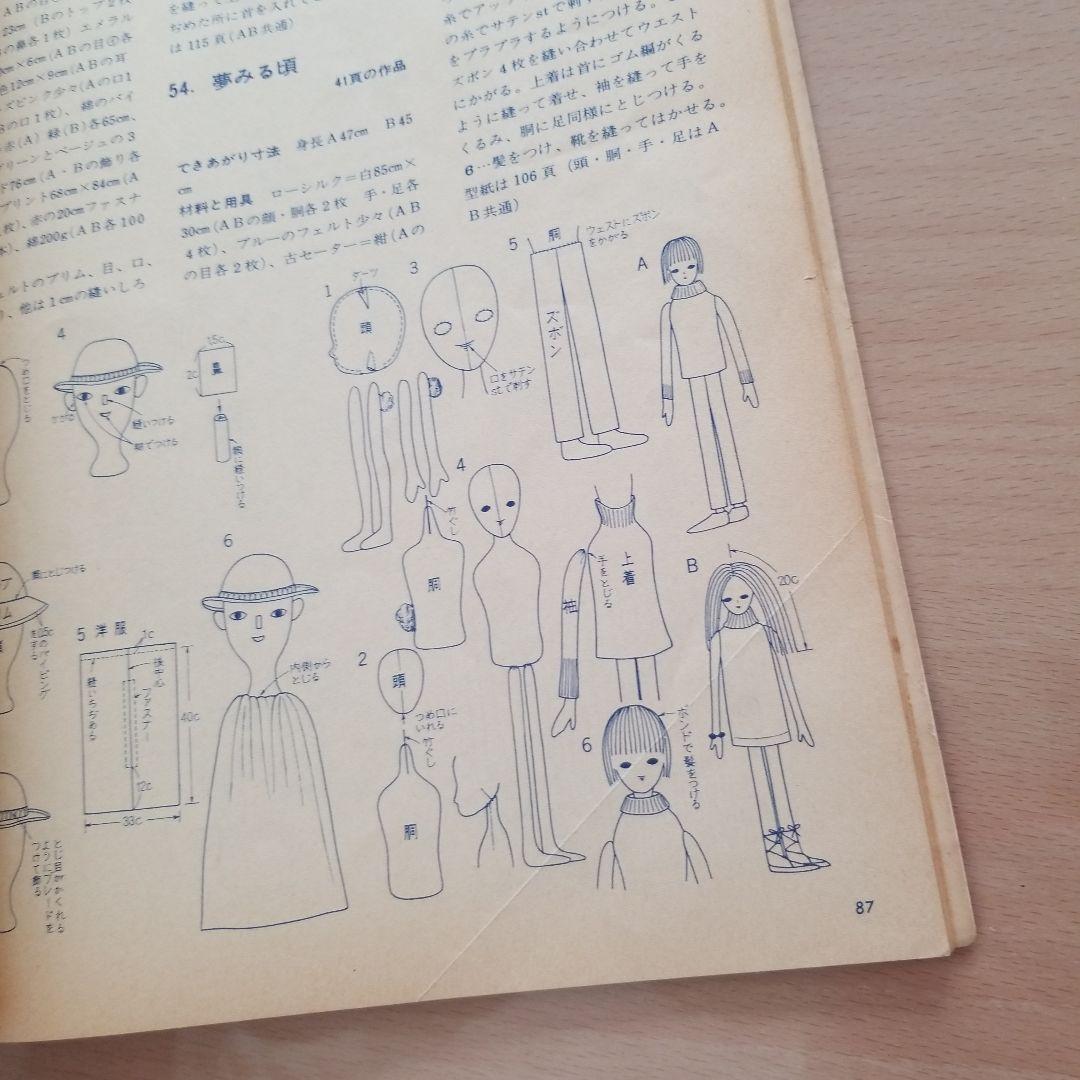 23cm(Bのトップ2枚
の鼻各1枚)エメラル
cm×6cm(ABの目④各
色12cm×9cm(ABの耳
ズピンク少々(Aの口1
Bの口1枚)、綿のバイ
赤(A)緑(B)各65cm、
グリーンとベージュの3
ド76cm(A・Bの飾り各
プリント68cm×84cm(A
枚)、赤の20cmファスナ
本)、綿200g(AB各100
ェルトのブリム、目、口、
り、他は1cmの縫いしろ
ぢめた所に首を入れて
は115頁(AB共通)
54. 夢みる頃
41頁の作品
できあがり寸法 身長A47cm B45
cm
材料と用具 ローシルク=白85cm×
30cm(ABの顔・胴各2枚 手・足各
4枚)、ブルーのフェルト少々(AB
の目各2枚)、古セーター=紺(Aの
の糸でサテンstで刺す
をブラブラするようにつける。
ズボン4枚を縫い合わせてウエスト
にかがる。上着は首にゴム編がくる
ように縫って着せ、袖を縫って手を
くるみ、胴に足同様にとじつける。
6…髪をつけ、靴を縫ってはかせる。
型紙は106頁(頭・胴・手・足はA
B共通)
つめ口をとじる
4
かがる
縫いつける
糊でつける
1.5c
2c
鼻
顔に縫いつける
1
ダーツ
頭
3
口をサテン
stで刺す
5
胴
ウェストにズボン
をかがる
ズボン
A
竹ぐし
胴
4
上着
手をとじる
袖
B
20c
2
頭
つめ口に
いれる
竹ぐし
胴
6
ボンドで髪をつける
6
内側から
とじる
5 洋服
1c
後中心
ファスナー
縫いちぢめる
40c
12c
33c
頭にとじつける
とじ目がかくれる
ようにブレードを
つけて飾る
87